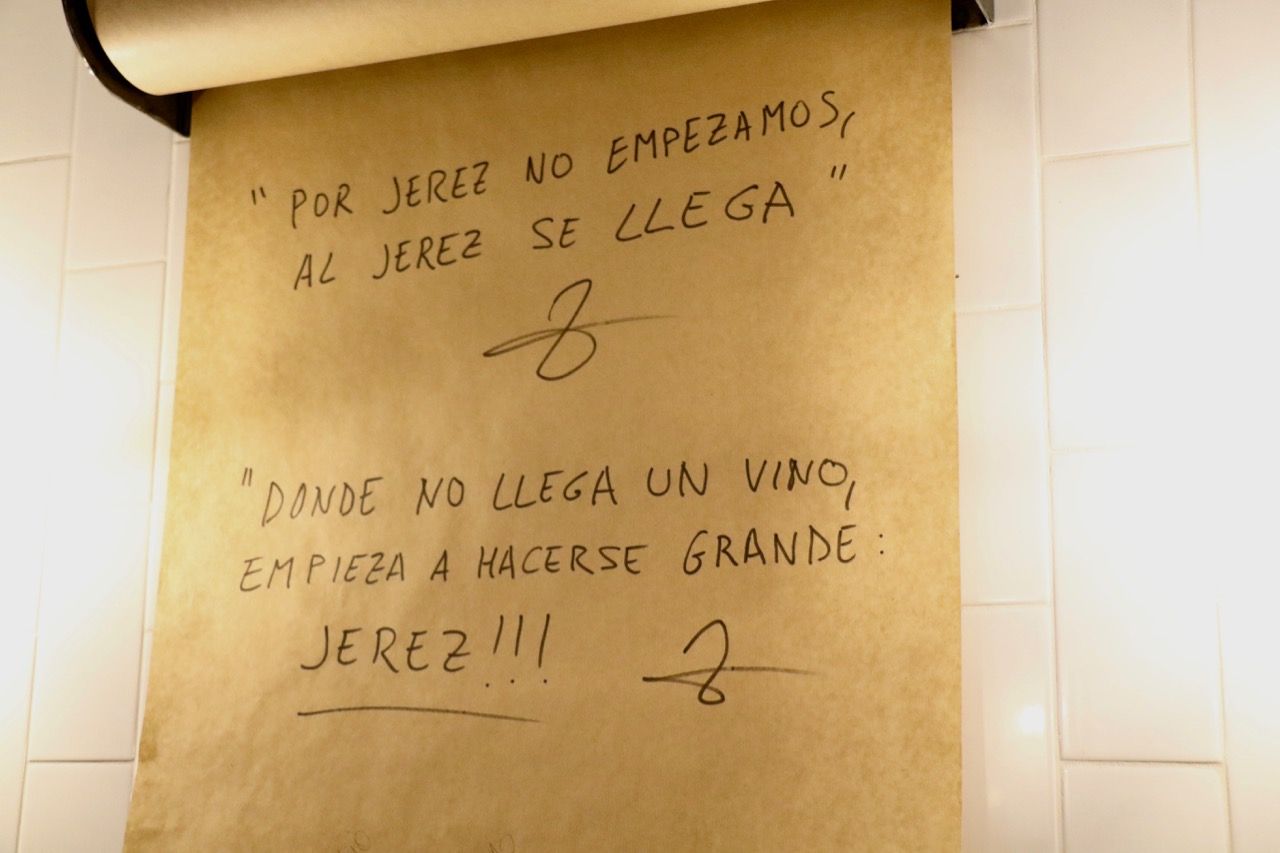 " POR JEREZ NO EMPEZAMOS,
AL JEREZ SE LLEGA "
"DONDE NO LLEGA UN VINO,
EMPIEZA A HACERSE GRANDE :
JEREZ!!!